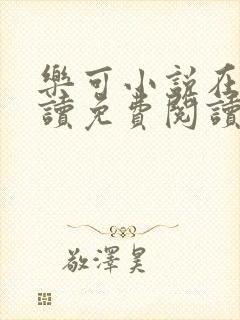 樂可小說在
讀免費閱讀
敬澤昊